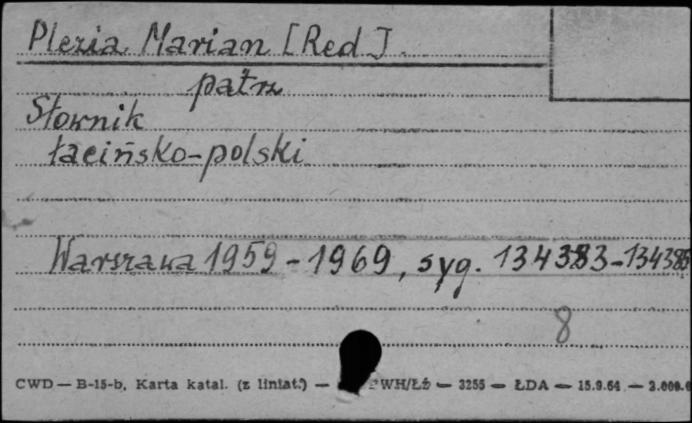 Plezia Marian [Red].
patrz
Słownik
łacińsko-polski
Warszawa 1959-1969, syg. 134383-134385
8
CWD — B-15-b, Karta katal. (z liniat.) — WH/Łź — 3255 — ŁDA — 15.9.64 —